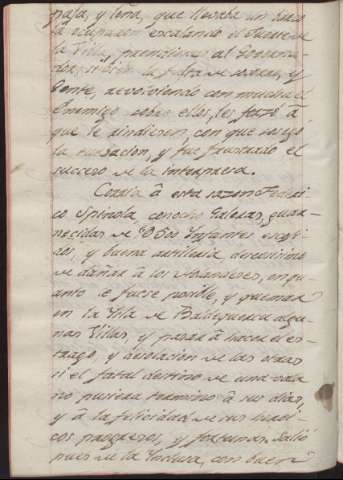 paja, y leña, que llevaba un barco
la ocupacion escalando el Puerto de
la Villa, prendieron al Governa-
dor,
Gente, revolviendo con mucha el
Enemigo sobre ellos, les forzó á
que se rindiesen, con que cesó
la turbacion, y fue frustrado el
suceso de la interpresa.
Corria á esta sazon Federi-
co Spinola con ocho Galeras, guar-
necidas de Infantes escogi-
dos, y buena artilleria, deseosisimo
de dañar á los Olandeses, en qu-
anto le fuese posible, y quemar
en la Isla de algu-
nas Villas, y pasar á hacer el es-
trago, y desolacion de las otras
si el fatal destino de una vala
no pusiera termino á sus dias,
y á la felicidad de sus
cos progresos, y fortunas. Salió
pues de la Esclusa, con buen